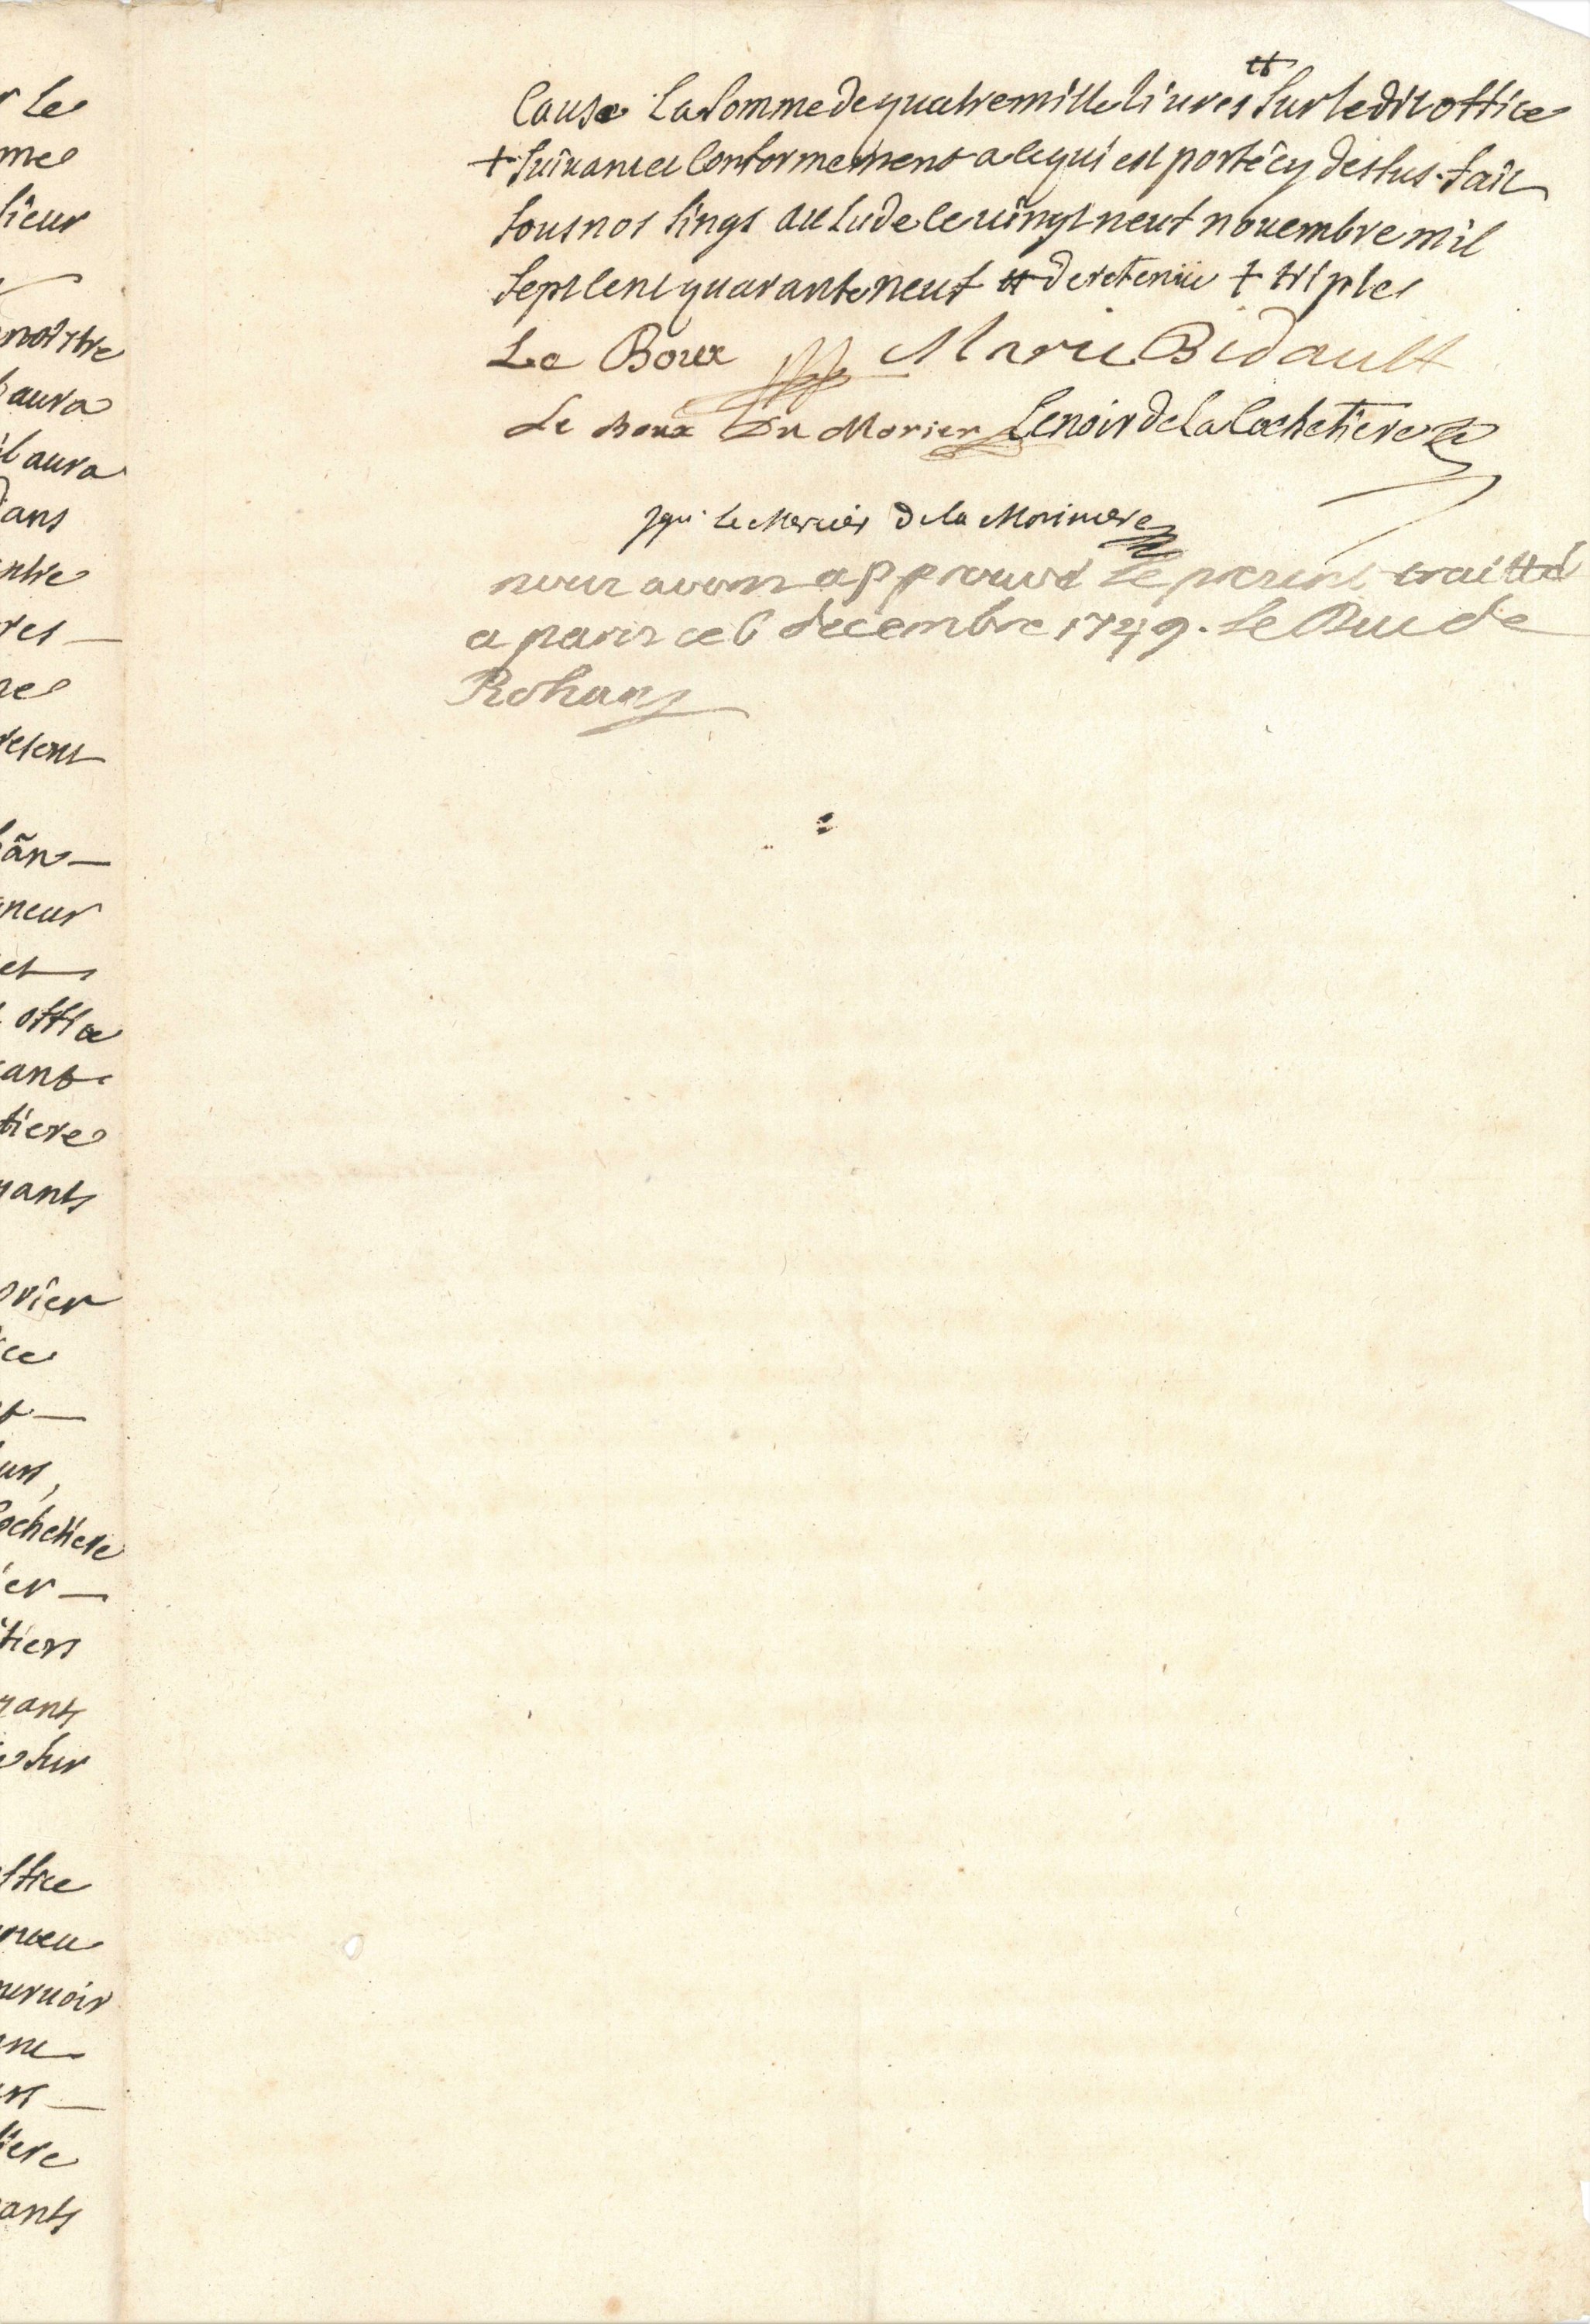 r le
mes
sieur
noistre
aura
il aura
dans
ntre
res —
nes
resent
neur
et
office
ant
tiere
nants
orier
ce
eurs,
Cochetiere
er —
tiers
nants
sur
office
ourvoir
une
iere
ants
Cause La somme de quatre mille livres # sur ledit office
+ suivant et Conformement a ce qui est porté cy dessus. fait
sous nos sings au Lude le vingt neuf novembre mil
sept Cent quarante neuf # de retenüe + triples
Le Boux Marie Bidault
Le Boux Du Morier Lenoir de La Cochetiere
Le Mercier de la Moriniere
nous avons approuvé le present traitté
a paris ce 6 decembre 1749. Le Duc de
Rohan